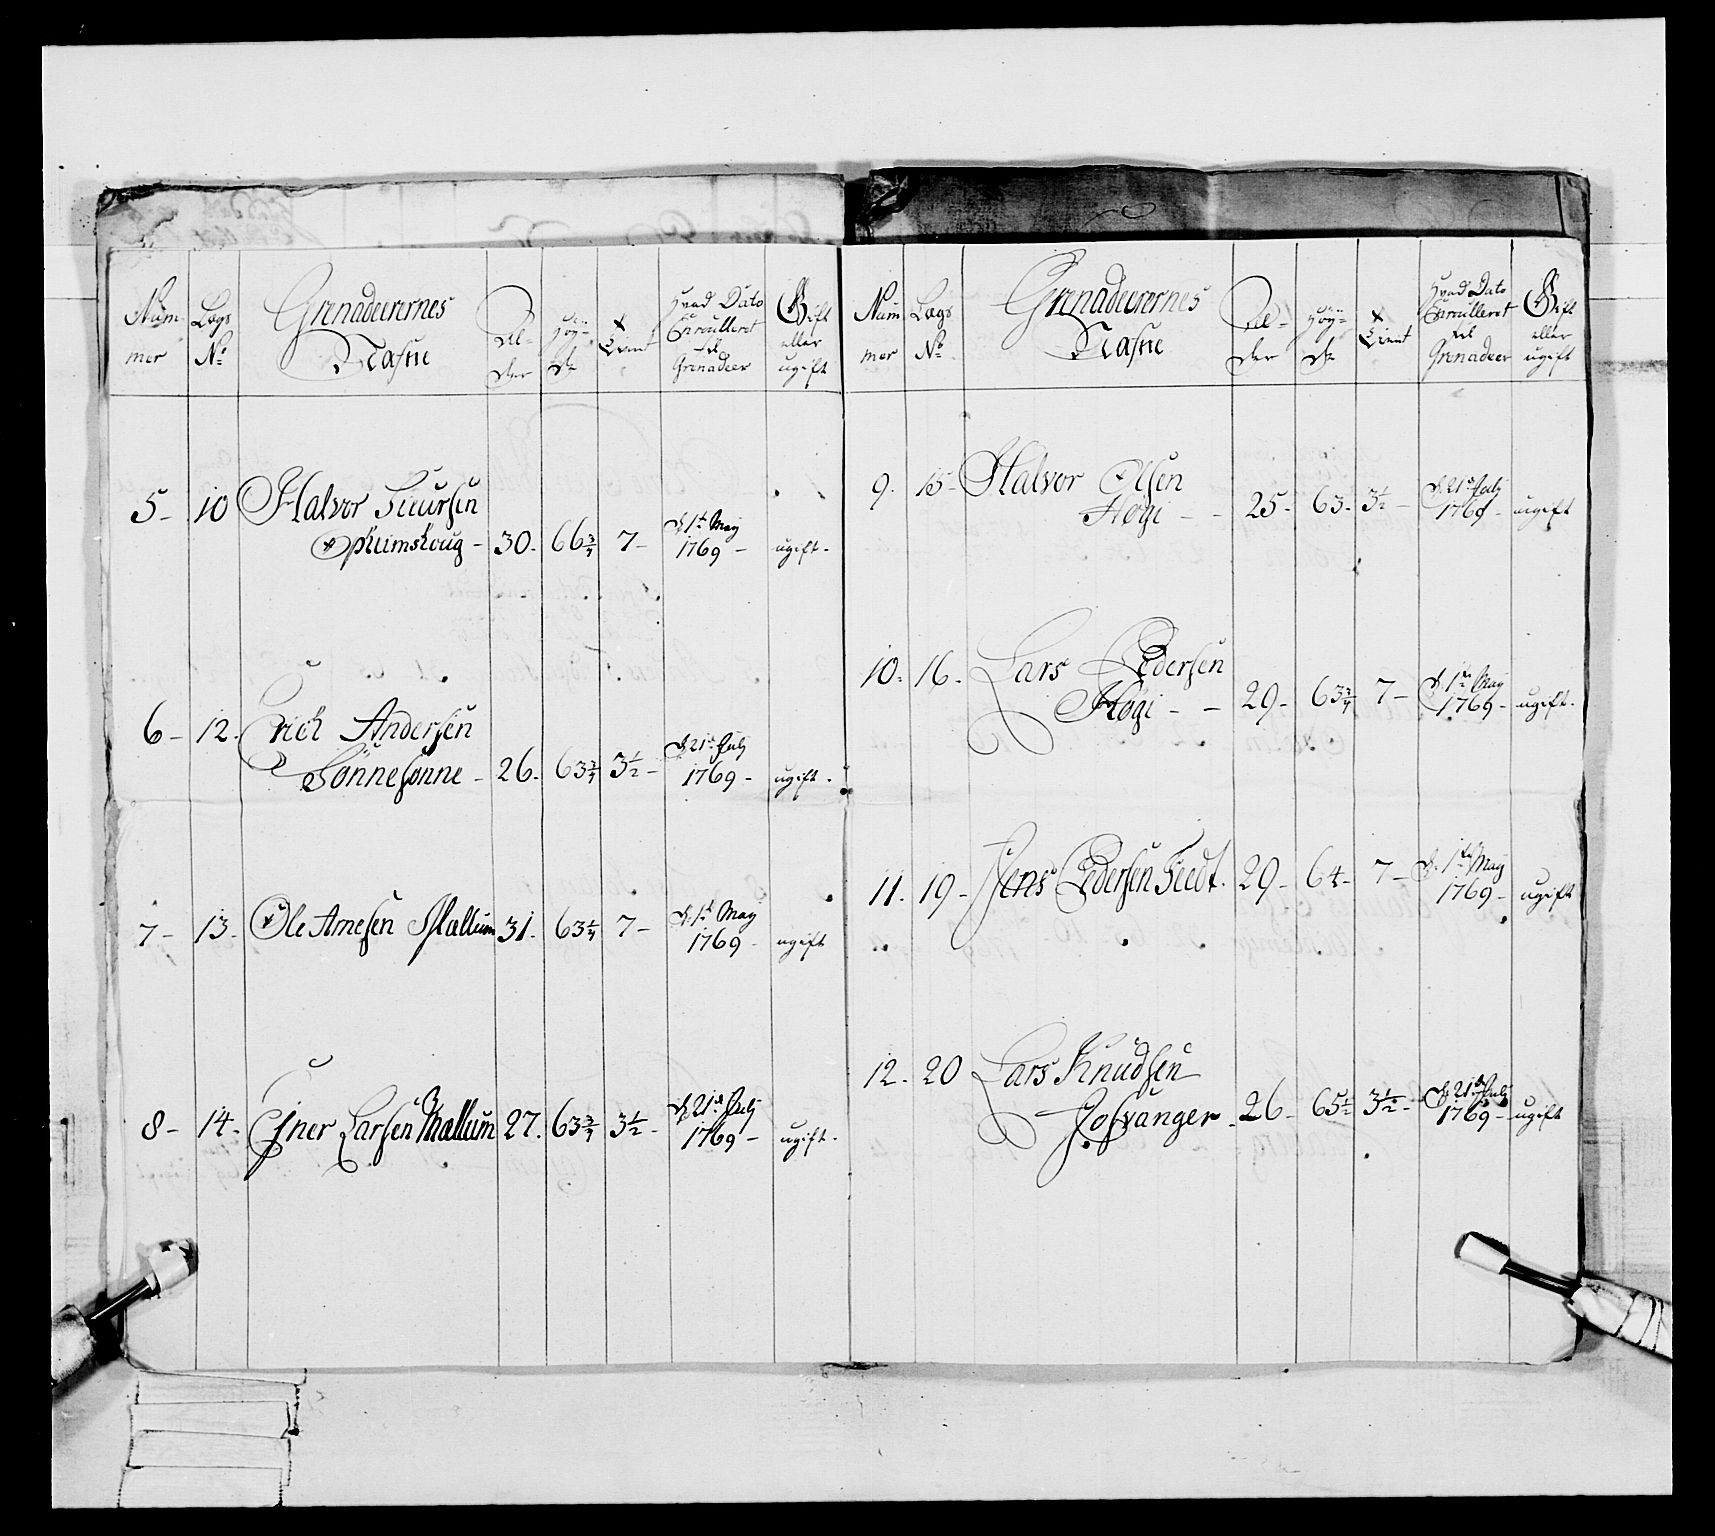 Num
mer
Lægs
No
Grenadeerernes
Nafne
Al-
der
Høy-
de
Tient
Hvad Dato
Enroulleret
til
Grenadeer
Gift
eller
ugift
5- 10 Halvor Siursen
- 30. 66 3/4 7- d. 1te May
1769 - ugift.
6- 12. Erich Andersen
Sønnesønne - 26. 63 3/4 3 1/2 - d. 21de July
1769 - ugift.
7- 13. Ole Arnesen Mællum 31. 63 1/4 7- d. 1te May
1769 - ugift
8- 14. Ejner Larsen Mællum 27. 63 3/4 3 1/2 - d. 21de July
1769 - ugift.
Num
mer
Lægs
No
Grenadeerernes
Nafne
Al-
der
Høy-
de
Tient
Hvad Dato
Enroulleret
til
Grenadeer
Gift
eller
ugift
9. 15- Halvor Olsen
Høgi - - 25- 63. 3 1/2 - d. 21de July
1769 - ugift
10. 16. Lars Pedersen
Høgi - - 29- 63 3/4 7- d. 1te May
1769 - ugift.
11. 19- Jens Pedersen Tvedt. 29- 64- 7- d. 1te May
1769 - ugift
12. 20 Lars Knudsen
Josvanger - 26- 65 1/2 3 1/2 - d. 21de July
1769 - ugift